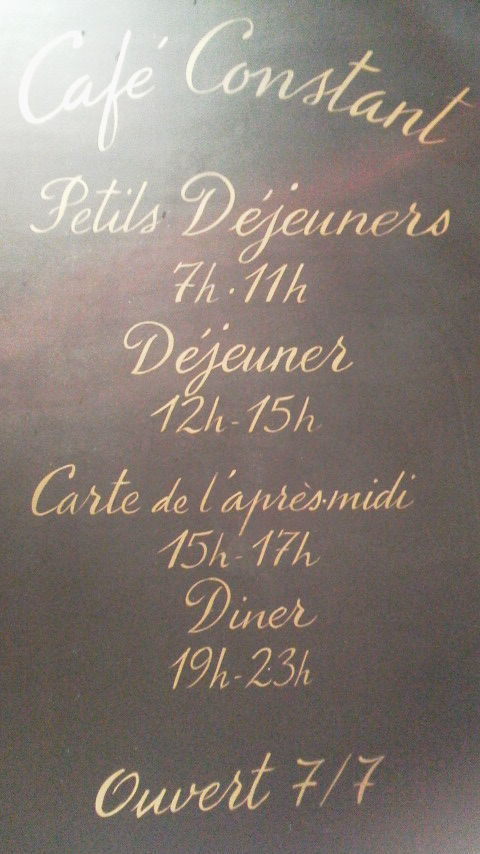 Café Constant
Petits Déjeuners
7h·11h
Déjeuner
12h-15h
Carte de l'après-midi
15h-17h
Diner
19h-23h
Ouvert 7/7